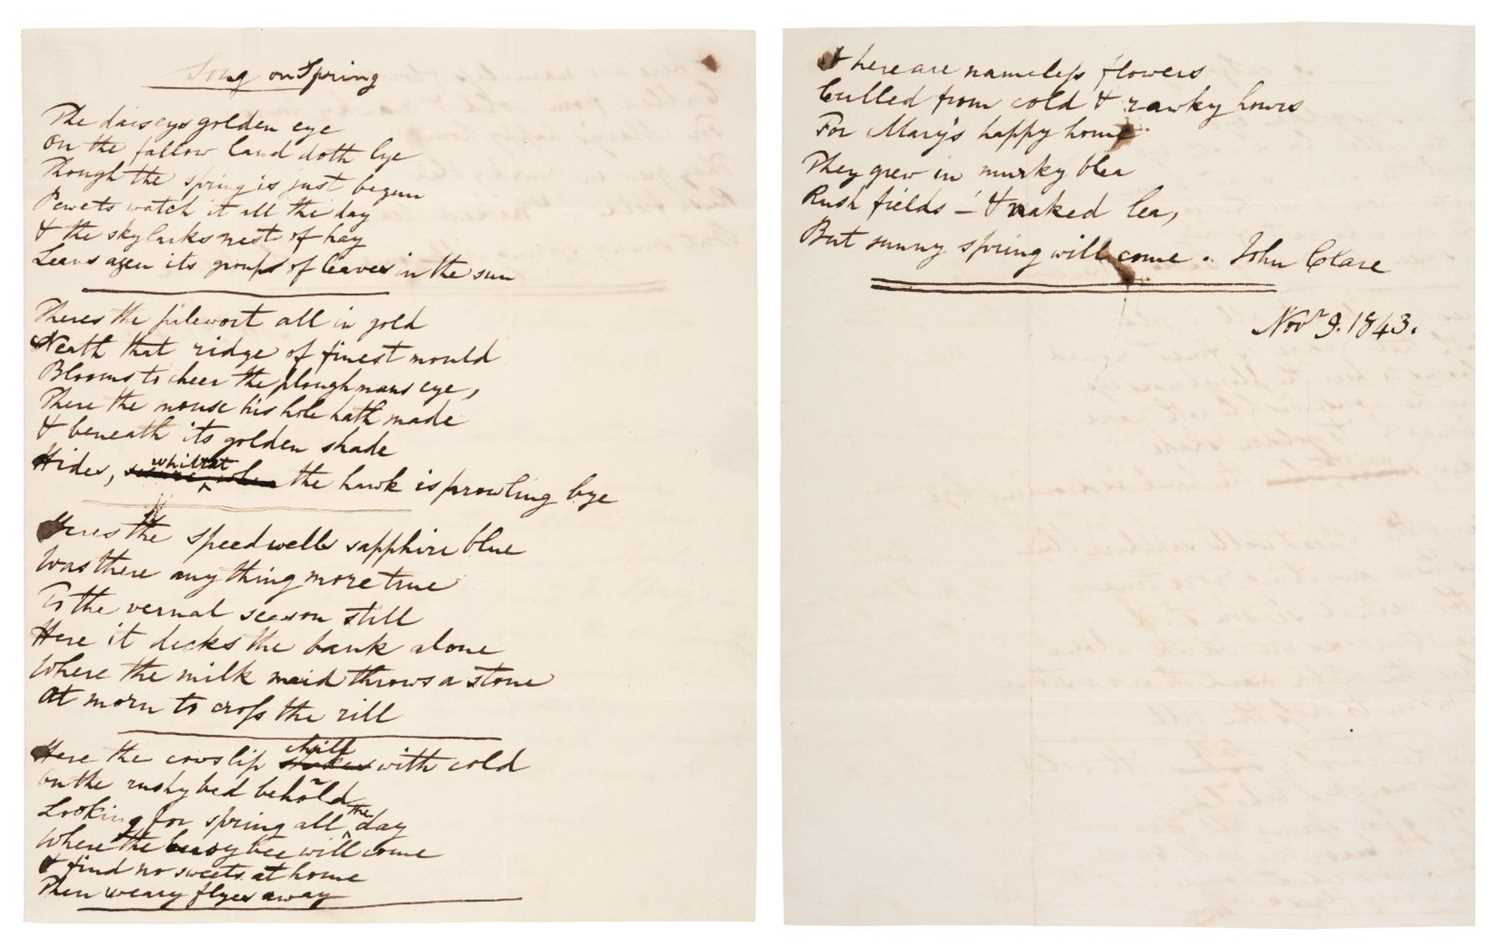 Song on Spring
The daiseys golden eye
On the fallow land doth lye
Though the spring is just begun
Pewets watch it all the day
& the skylarks nest of hay
Leans agen its groups of leaves in the sun
Theres the pilewort all in gold
Neath that ridge of finest mould
Blooms to cheer the ploughmans eye,
There the mouse his hole hath made
& beneath its golden shade
whilst
Hides, when the hawk is prowling bye
Heres the speedwells sapphire blue
Was there any thing more true
To the vernal season still
Here it decks the bank alone
Where the milk maid throws a stone
At morn to cross the rill
chill
Here the cowslip with cold
On the rushy bed behold
the
Looking for spring all day
Where the busy bee will come
& find no sweets at home
Then weary flyes away
& here are nameless flowers
Culled from cold & rawky hours
For Mary's happy home
They grew in murky blea
Rush fields – & naked lea,
But sunny spring will come. John Clare
Novr 9. 1843.